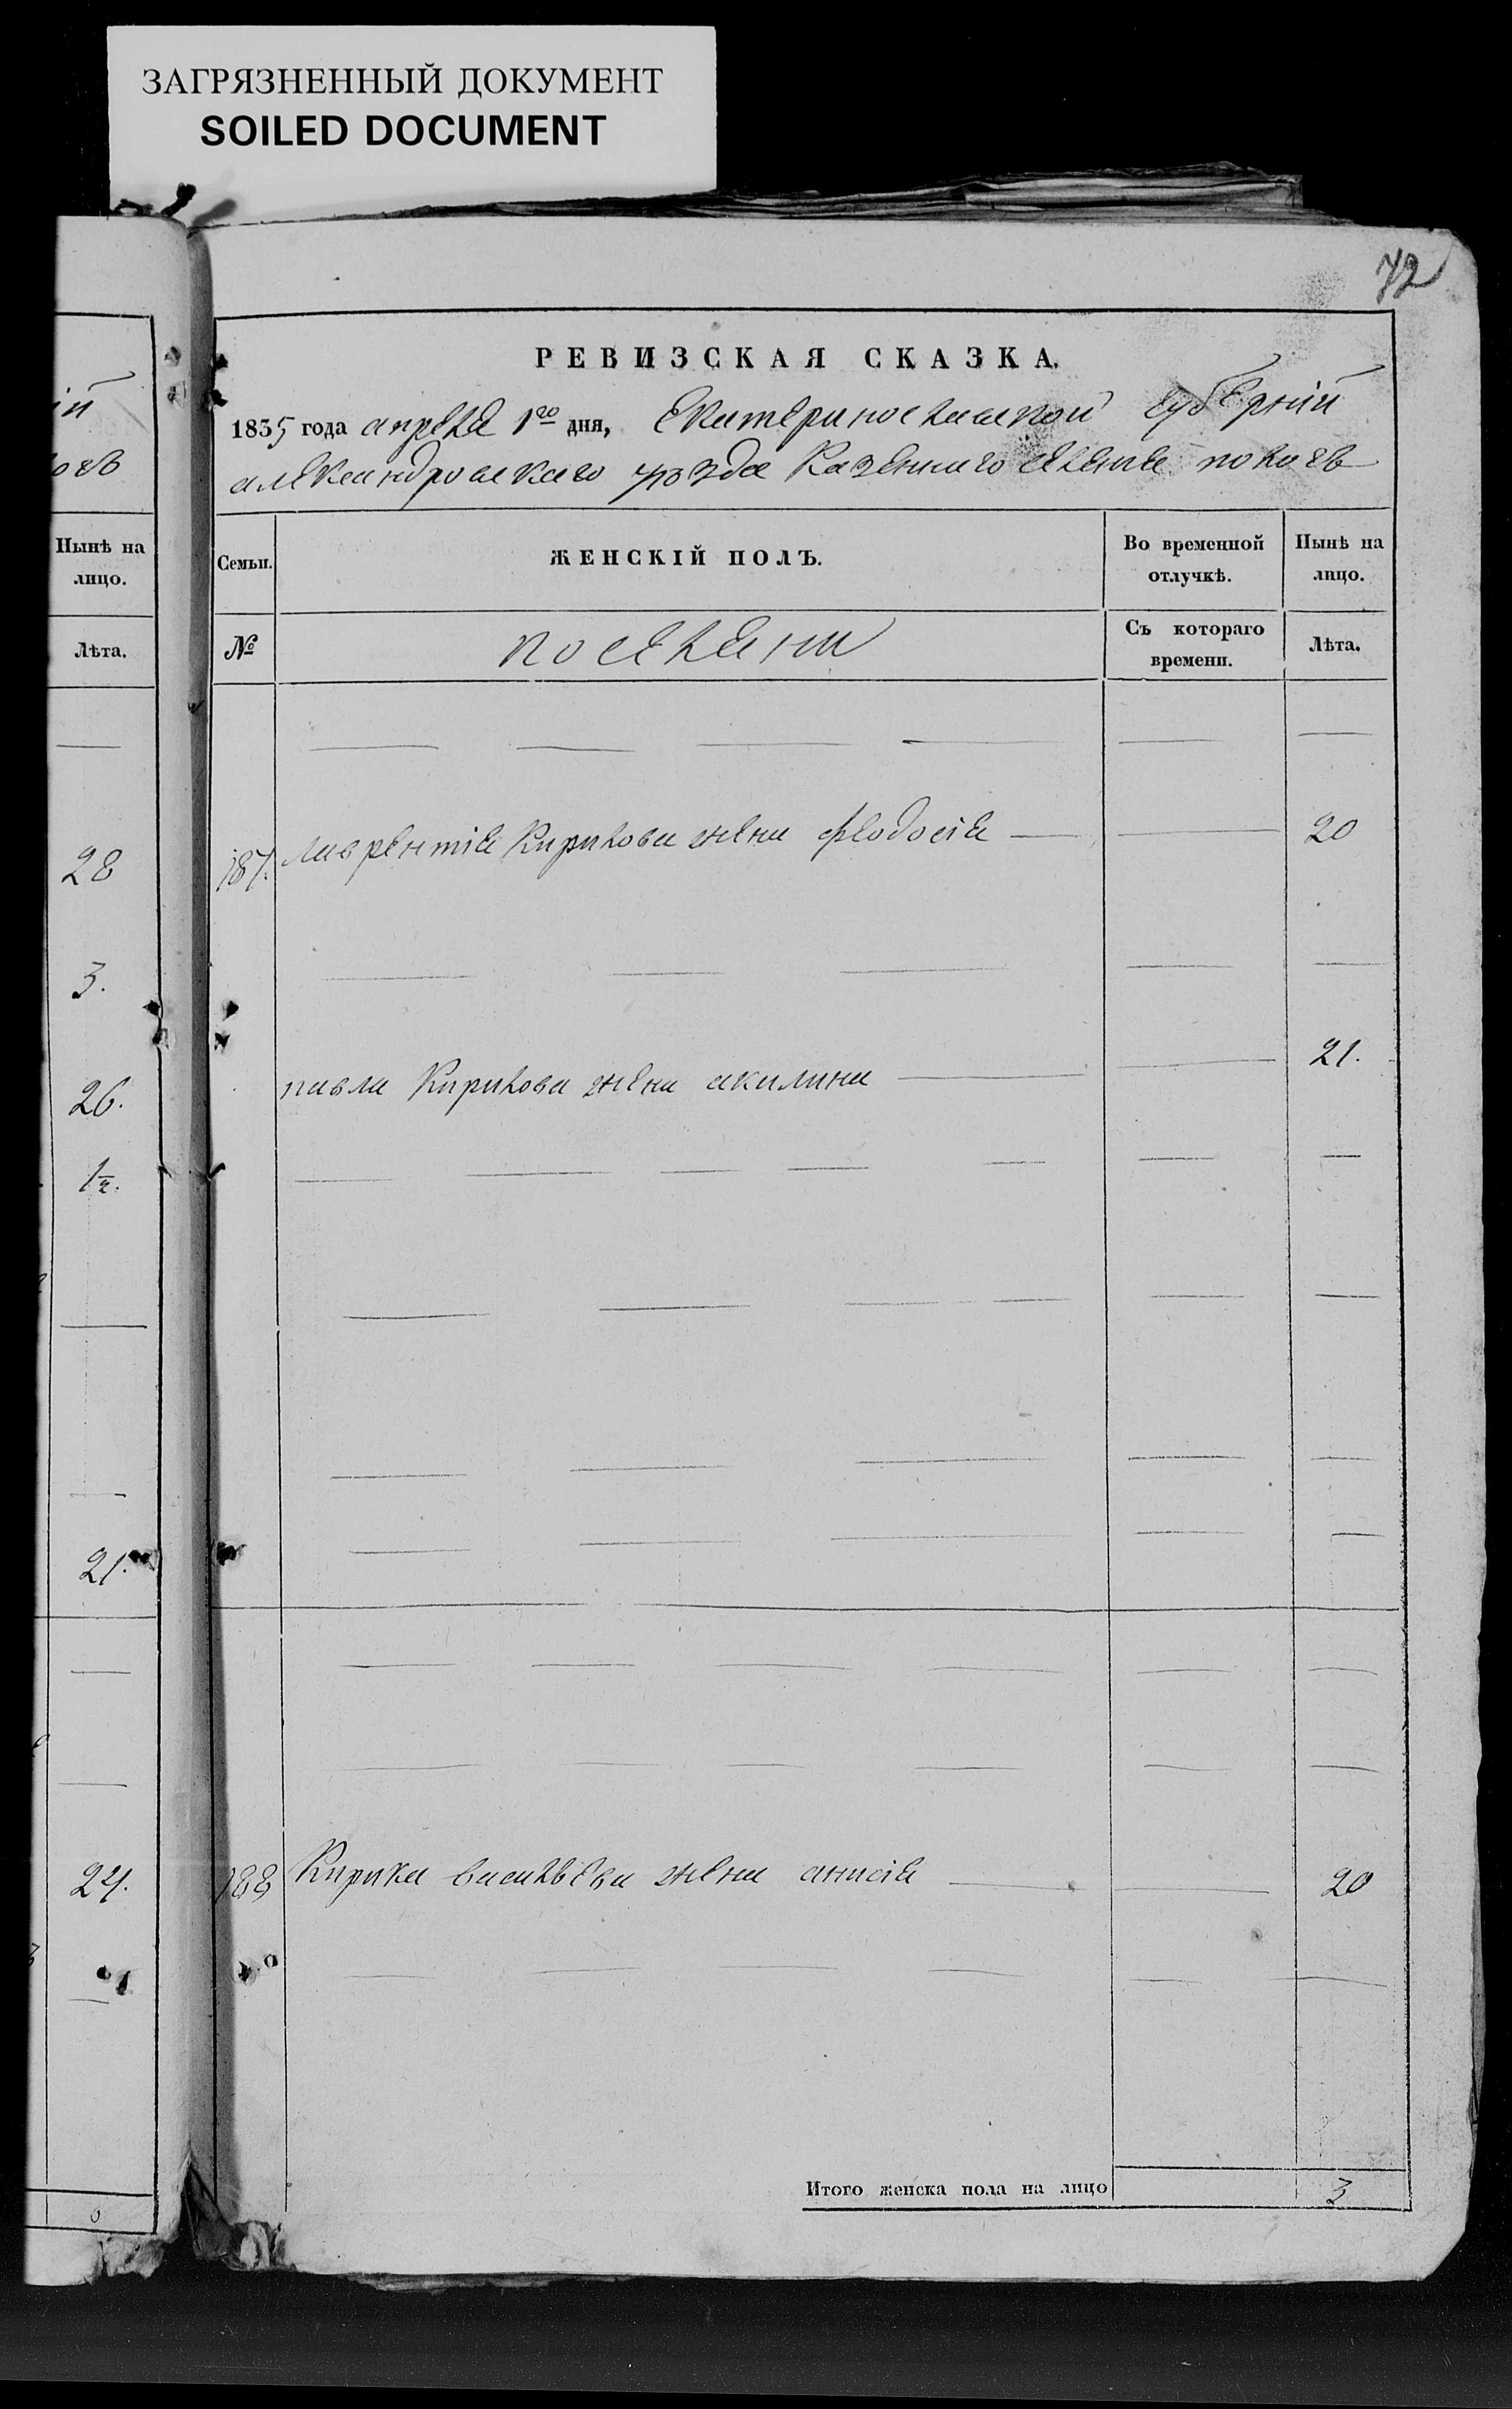 ЗАГРЯЗНЕННЫЙ ДОКУМЕНТ
SOILED DOCUMENT
72
РЕВИЗСКАЯ СКАЗКА.
1835 года апреля 1го дня, Екатеринославской губернии
александровскаго уѣзда Казеннаго селения пологъ
Нынѣ на
лицо.
Лѣта.
28
3.
26.
1/2.
21.
24.
Семьи.
ЖЕНСКІЙ ПОЛЪ.
Во временной
отлучкѣ.
Нынѣ на
лицо.
№
поселяни
Съ котораго
времени.
Лѣта.
187. Лаврентія Кирилова жена феодосія 20
павла Кирилова жена акилина 21.
188 Кирика васильева жена анисія 20
Итого женска пола на лицо 3